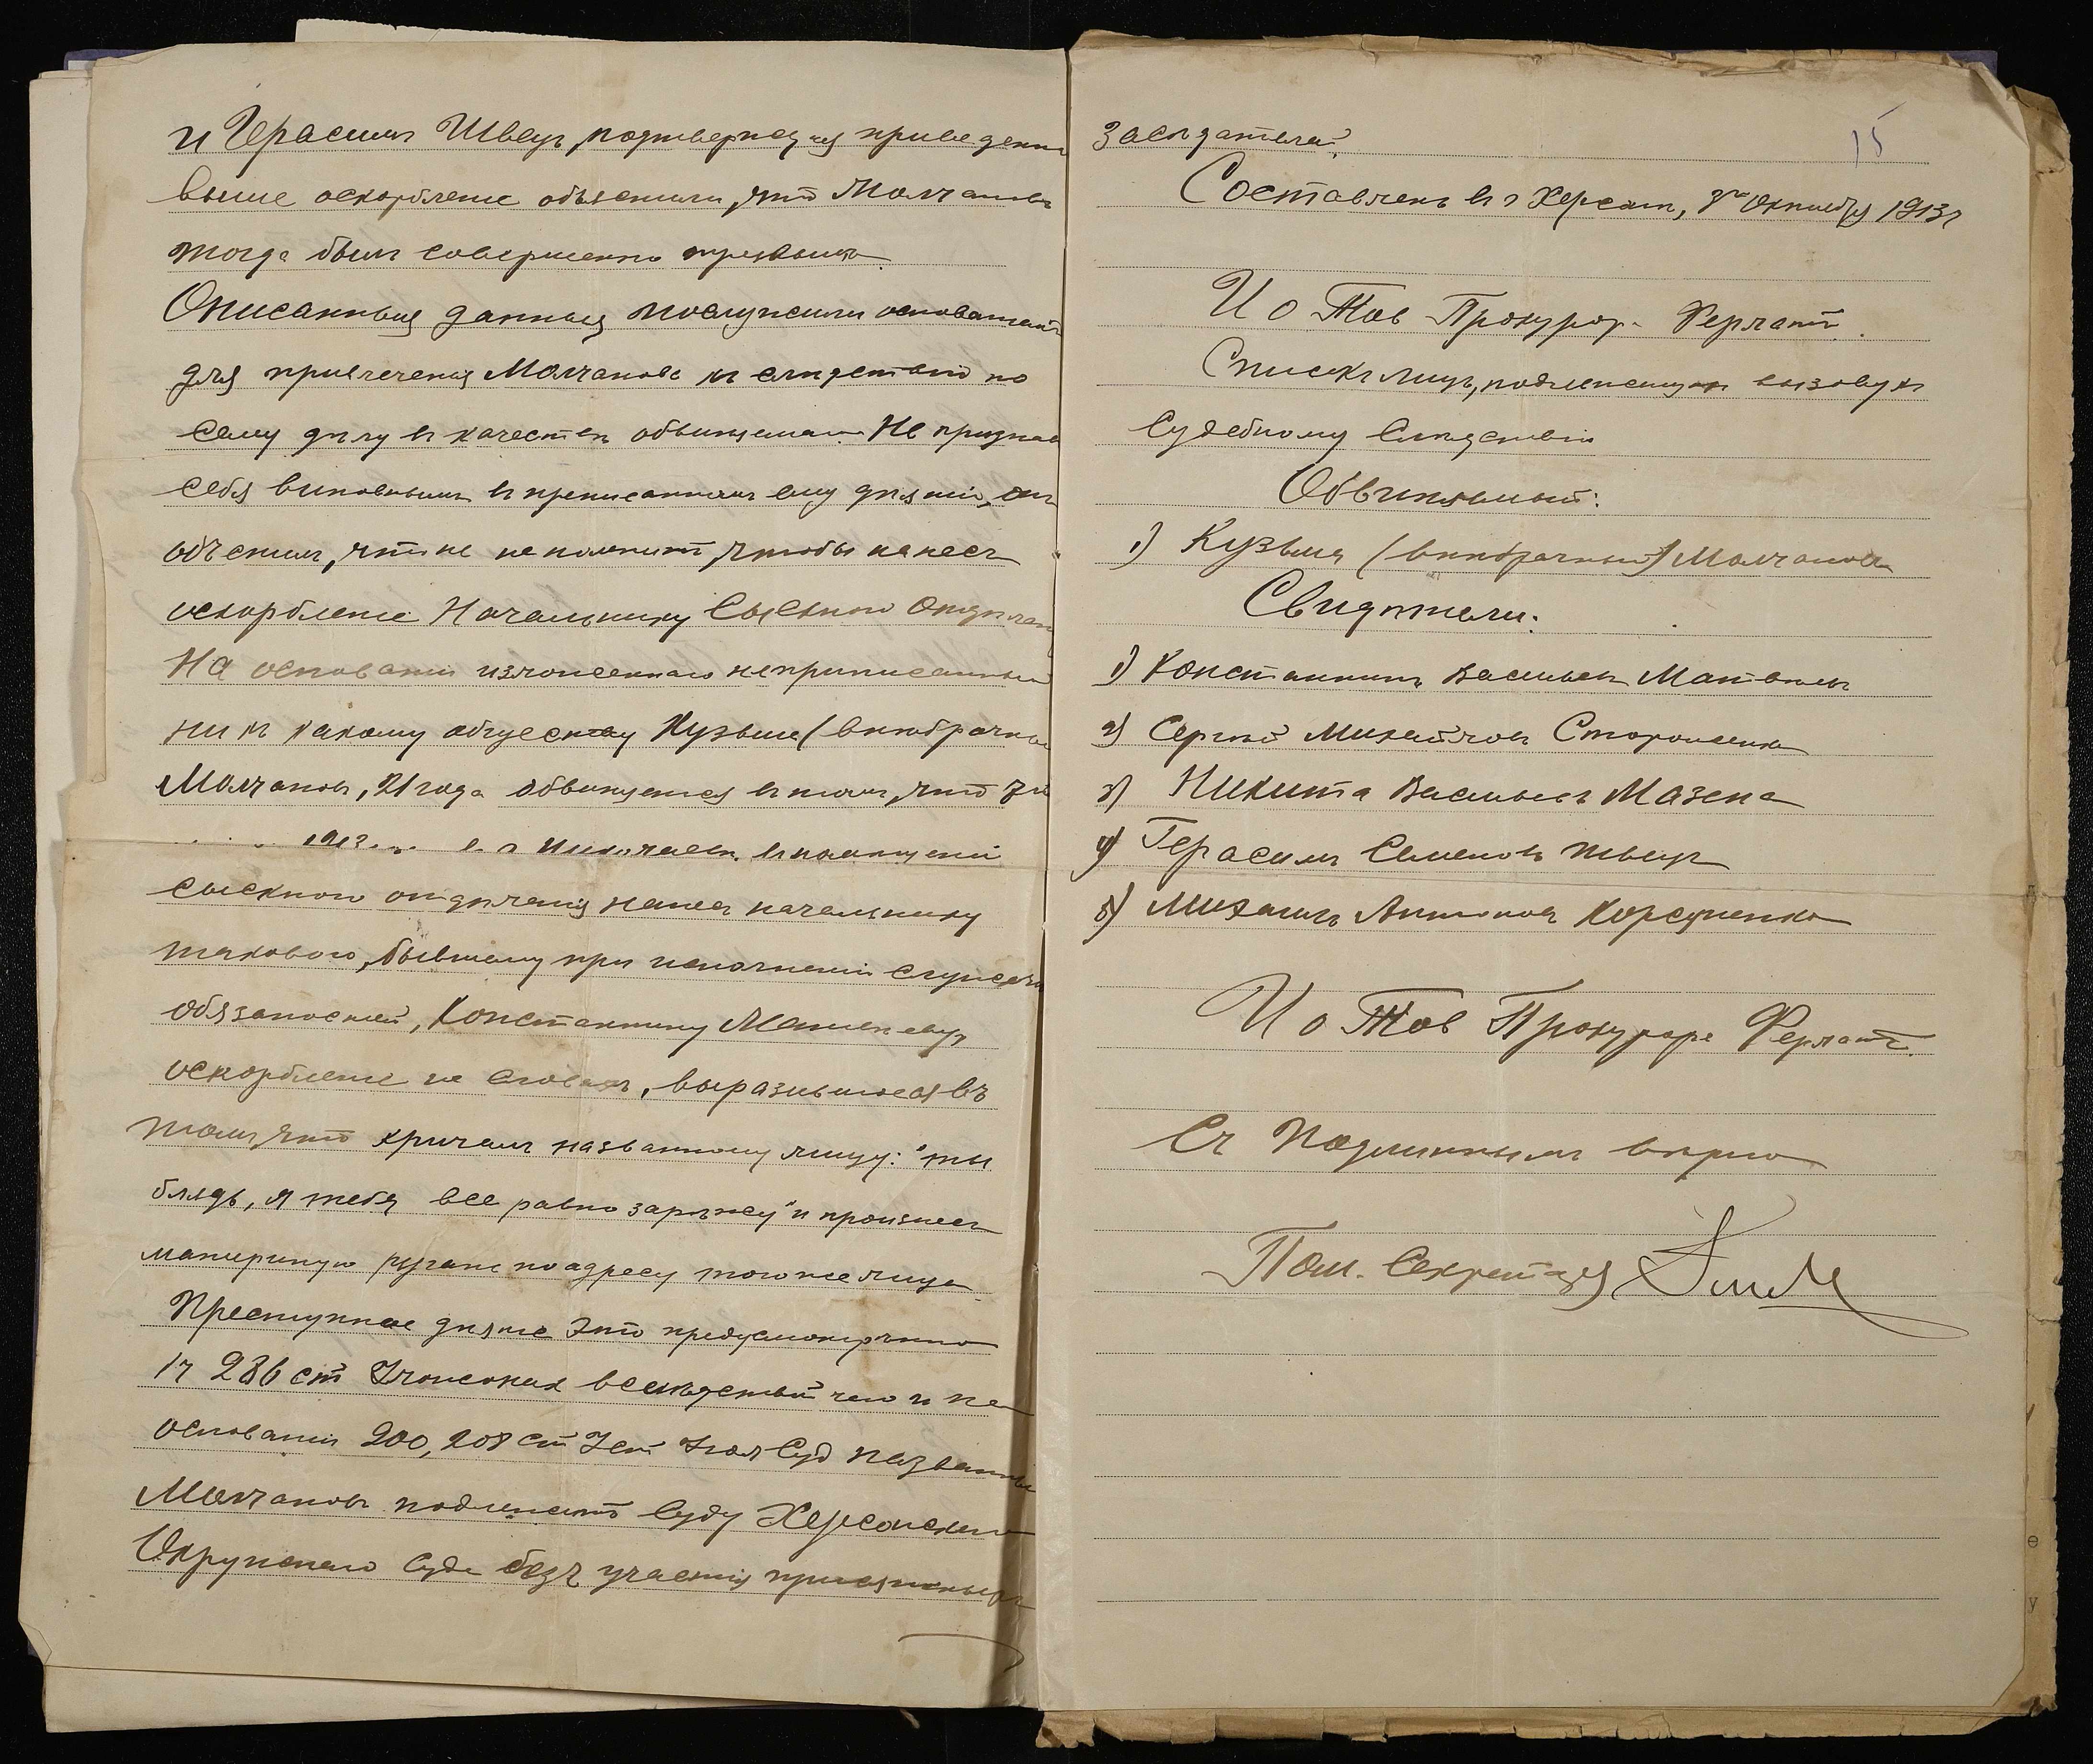 и Герасимъ Швецъ, подтверждая приведенн
выше оскорбленіе объяснили, что Молчановъ
тогда былъ совершенно трезвымъ.
Описанныя данныя послужили основаніемъ
для привлеченія Молчанова къ слѣдствію по
сему дѣлу въ качествѣ обвиняемаго. Не признав
себя виновнымъ въ приписанномъ ему дѣяніи, онъ
объяснилъ, что не помнитъ, чтобы нанесъ
оскорбленіе Начальнику Сыскного Отдѣлен
На основаніи изложеннаго неприписанный
ни къ какому обществу Кузьма (внѣбрачны
Молчановъ, 21 года обвиняется въ томъ, что 7го
1913 г. въ г. Николаевѣ, въ помѣщеніи
сыскного отдѣленія нанесъ начальнику
такового, бывшему при исполненіи служебн
обязаностей, Константину Матвѣеву,
оскорбленіе на словахъ, выразившееся въ
томъ, что кричалъ названному лицу: "ты
блядь, я тебя все равно зарѣжу" и произнесъ
матерную ругань по адресу того же лица.
Преступное дѣяніе это предусмотрѣно
1 ч 286 ст Улож о нак вслѣдствіи чего и на
основаніи 200, 208 ст Уст Угол Суд названны
Молчановъ подлежитъ суду Херсонскаго
Окружнаго Суда безъ участія присяжныхъ
15
засѣдателей.
Составленъ въ г Херсонѣ, Октября 1913 г
И о Тов Прокурора Ферлатъ.
Списокъ лицъ, подлежащихъ вызову къ
Судебному Слѣдствію
Обвиняемый:
1) Кузьма (внѣбрачный) Молчановъ
Свидѣтели:
1) Константинъ Васильевъ Матвѣевъ
2) Сергѣй Михайловъ Стороженко
3) Никита Васильевъ Мазепа
4) Герасимъ Семеновъ Швецъ
5) Михаилъ Антоновъ Корсуненко
И о Тов Прокурора Ферлатъ.
Съ Подлиннымъ вѣрно
Пом. Секретаря